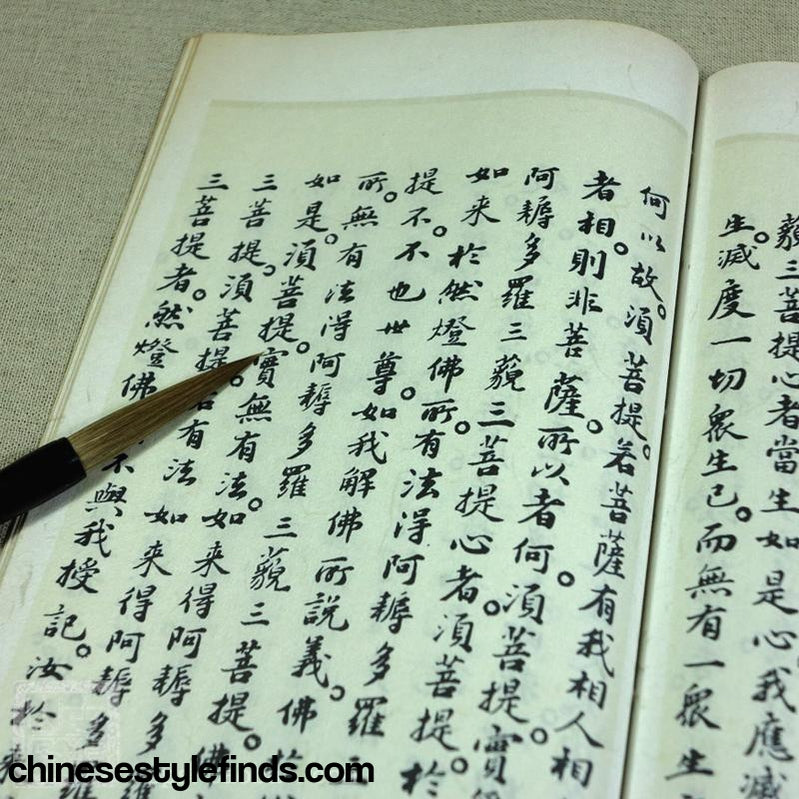 藐三菩提心者當生如是心我應滅
生。滅度一切眾生已。而無有一眾生
何以故。須菩提。若菩薩有我相人相
者相。則非菩薩。所以者何。須菩提。實
阿耨多羅三藐三菩提心者。須菩提。於
如来於然燈佛所。有法得阿耨多羅三
提不。不也世尊。如我解佛所說義。佛於
所。無有法得阿耨多羅三藐三菩提。佛
如是。須菩提。實無有法。如来得阿耨多
三菩提。須菩提。若有法如来得阿耨多羅
三菩提者。然燈佛不與我授記。汝於来
chinesestylefinds.com